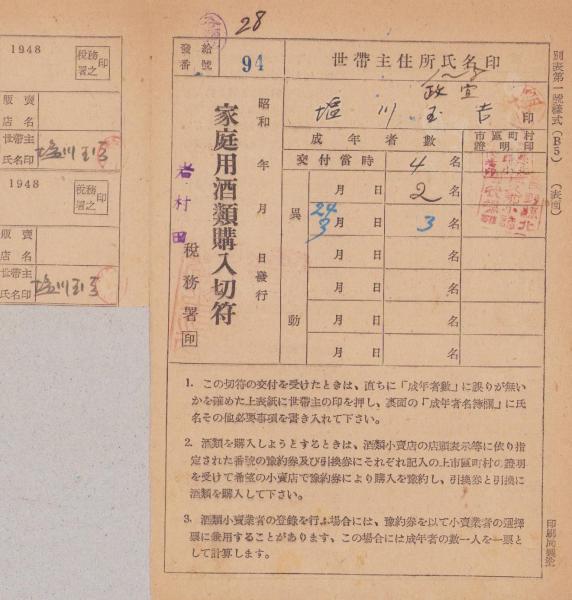 1948
税務署之印
販賣店名
世帶主氏名印
塩川玉吉
1948
税務署之印
販賣店名
世帶主氏名印
塩川玉吉
28
發給番號
94
世帶主住所氏名印
政宣
塩川玉吉 印
別表第一號樣式(B5) (表面)
家庭用酒類購入切符
昭和 年 月 日發行
岩村田 税務署 印
成年者數
市區町村證明印
交付當時 4名
異動
月 日 2名
24 月 3 日 3名
月 日 名
月 日 名
月 日 名
月 日 名
月 日 名
1. この切符の交付を受けたときは、直ちに「成年者數」に誤りが無い
かを確めた上表紙に世帶主の印を押し、裏面の「成年者名簿欄」に氏
名その他必要事項を書き入れて下さい。
2. 酒類を購入しようとするときは、酒類小賣店の店頭表示等に依り指
定された番號の豫約券及び引換券にそれぞれ記入の上市區町村の證明
を受けて希望の小賣店で豫約券により購入を豫約し、引換券と引換に
酒類を購入して下さい。
3. 酒類小賣業者の登錄を行ふ場合には、豫約券を以て小賣業者の選擇
票に兼用することがあります、この場合には成年者の數一人を一票と
して計算します。
印刷局製造